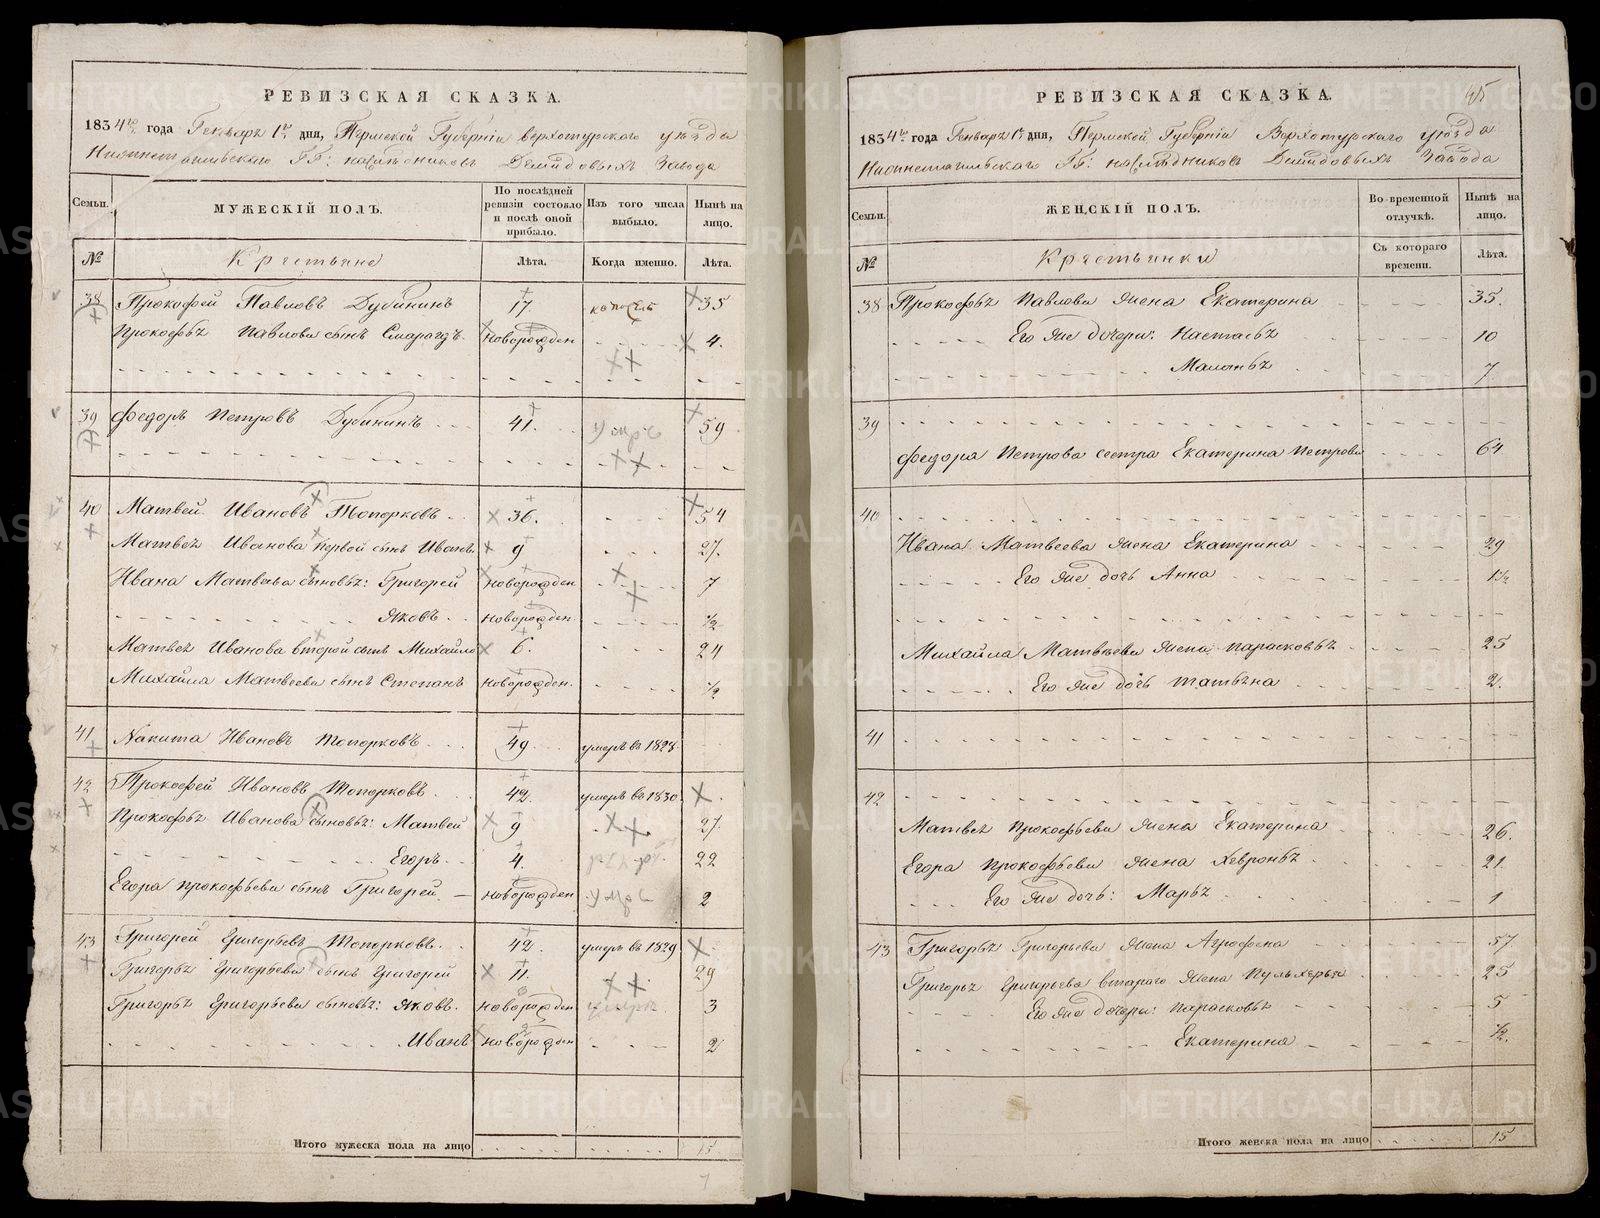 РЕВИЗСКАЯ СКАЗКА.
1834го года Генваря 1го дня, Пермской Губернiи Верхотурскаго уѣзда
Нижнетагильскаго ГГ: наслѣдниковъ Демидовыхъ Завода
Семьи. МУЖЕСКIЙ ПОЛЪ. По послѣдней ревизiи состояло и послѣ оной прибыло. Изъ того числа выбыло. Нынѣ на лицо.
№ Крестьяне Лѣта. Когда именно. Лѣта.
38 Прокофей Павловъ Дубининъ 17. 35
Прокофья Павлова сынъ Смарагдъ. новорожден 4.
39 Федоръ Петровъ Дубининъ 41. 59
40 Матвей Ивановъ Топорковъ 36. 54
Матвея Иванова первой сынъ Иванъ 9 27.
Ивана Матвеева сыновья: Григорей новорожден 7
Яковъ новорожден ½
Матвея Иванова второй сынъ Михайло 6. 24
Михайла Матвеева сынъ Степанъ новорожден. ½
41 Никита Ивановъ Топорковъ 49 умеръ въ 1828.
42 Прокофей Ивановъ Топорковъ 42. умеръ въ 1830.
Прокофья Иванова сыновья: Матвей 9 27.
Егоръ 4. 22
Егора Прокофьева сынъ Григорей новорожден 2
43 Григорей Григорьевъ Топорковъ 42. умеръ въ 1829
Григорья Григорьева сынъ Григорей 11. 29
Григорья Григорьева сыновья: Яковъ новорожден 3
Иванъ новорожден 2
Итого мужеска пола на лицо 15
РЕВИЗСКАЯ СКАЗКА.
45
1834го года Генваря 1го дня, Пермской Губернiи Верхотурскаго уѣзда
Нижнетагильскаго ГГ: наслѣдниковъ Демидовыхъ Завода
Семьи. ЖЕНСКIЙ ПОЛЪ. Во временной отлучкѣ. Нынѣ на лицо.
№ Крестьянки Съ котораго времени. Лѣта.
38 Прокофья Павлова жена Екатерина 35.
Его же дочери: Настасья 10
Маланья 7
39
Федора Петрова сестра Екатерина Петрова 64
40
Ивана Матвеева жена Екатерина 29
Его же дочь Анна 1½
Михайла Матвѣева жена Парасковья 25
Его же дочь Татьяна 2.
41
42
Матвея Прокофьева жена Екатерина 26.
Егора Прокофьева жена Хевронья 21.
Его же дочь: Марья 1
43 Григорья Григорьева жена Агрофена 57
Григорья Григорьева втараго жена Пульхерья 25
Его же дочери: Парасковья 5
Екатерина ½.
Итого женска пола на лицо 15
METRIKI.GASO-URAL.RU